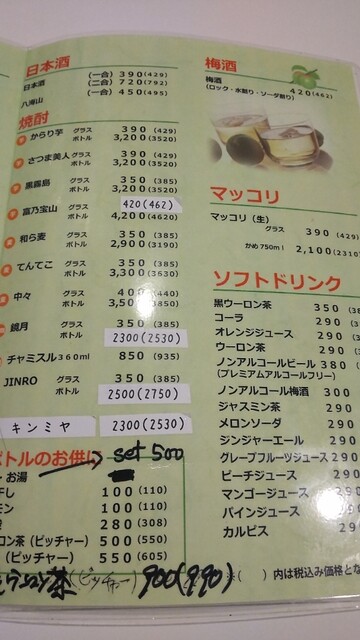 日本酒
日本酒 (一合) 390(429)
(二合) 720(792)
八海山 (一合) 450(495)
焼酎
からり芋 グラス 390 (429)
ボトル 3,200(3520)
さつま美人 グラス 390 (429)
ボトル 3,200(3520)
黒霧島 グラス 350 (385)
ボトル 3,200(3520)
富乃宝山 グラス 420(462)
ボトル 4,200(4620)
和ら麦 グラス 350 (385)
ボトル 2,900(3190)
てんてこ グラス 350 (385)
ボトル 3,300(3630)
中々 グラス 400 (440)
ボトル 3,500(3850)
鏡月 グラス 350 (385)
ボトル 2300(2530)
チャミスル360ml 850 (935)
JINRO グラス 350 (385)
ボトル 2500(2750)
キンミヤ 2300(2530)
ボトルのお供に set 500
・お湯
干し 100 (110)
モン 100 (110)
280 (308)
ロン茶(ピッチャー) 500(550)
(ピッチャー) 550(605)
茶(ピッチャー) 900(990)
梅酒
梅酒 420(462)
(ロック・水割り・ソーダ割り)
マッコリ
マッコリ(生)
グラス 390 (429)
かめ750ml 2,100(2310)
ソフトドリンク
黒ウーロン茶 350 (38
コーラ 290 (3
オレンジジュース 290 (3
ウーロン茶 290 (3
ノンアルコールビール 380 (
(プレミアムアルコールフリー)
ノンアルコール梅酒 300
ジャスミン茶 290
メロンソーダ 290
ジンジャーエール 290
グレープフルーツジュース 290
ピーチジュース 290
マンゴージュース 290
パインジュース 290
カルピス 290
※( )内は税込み価格とな